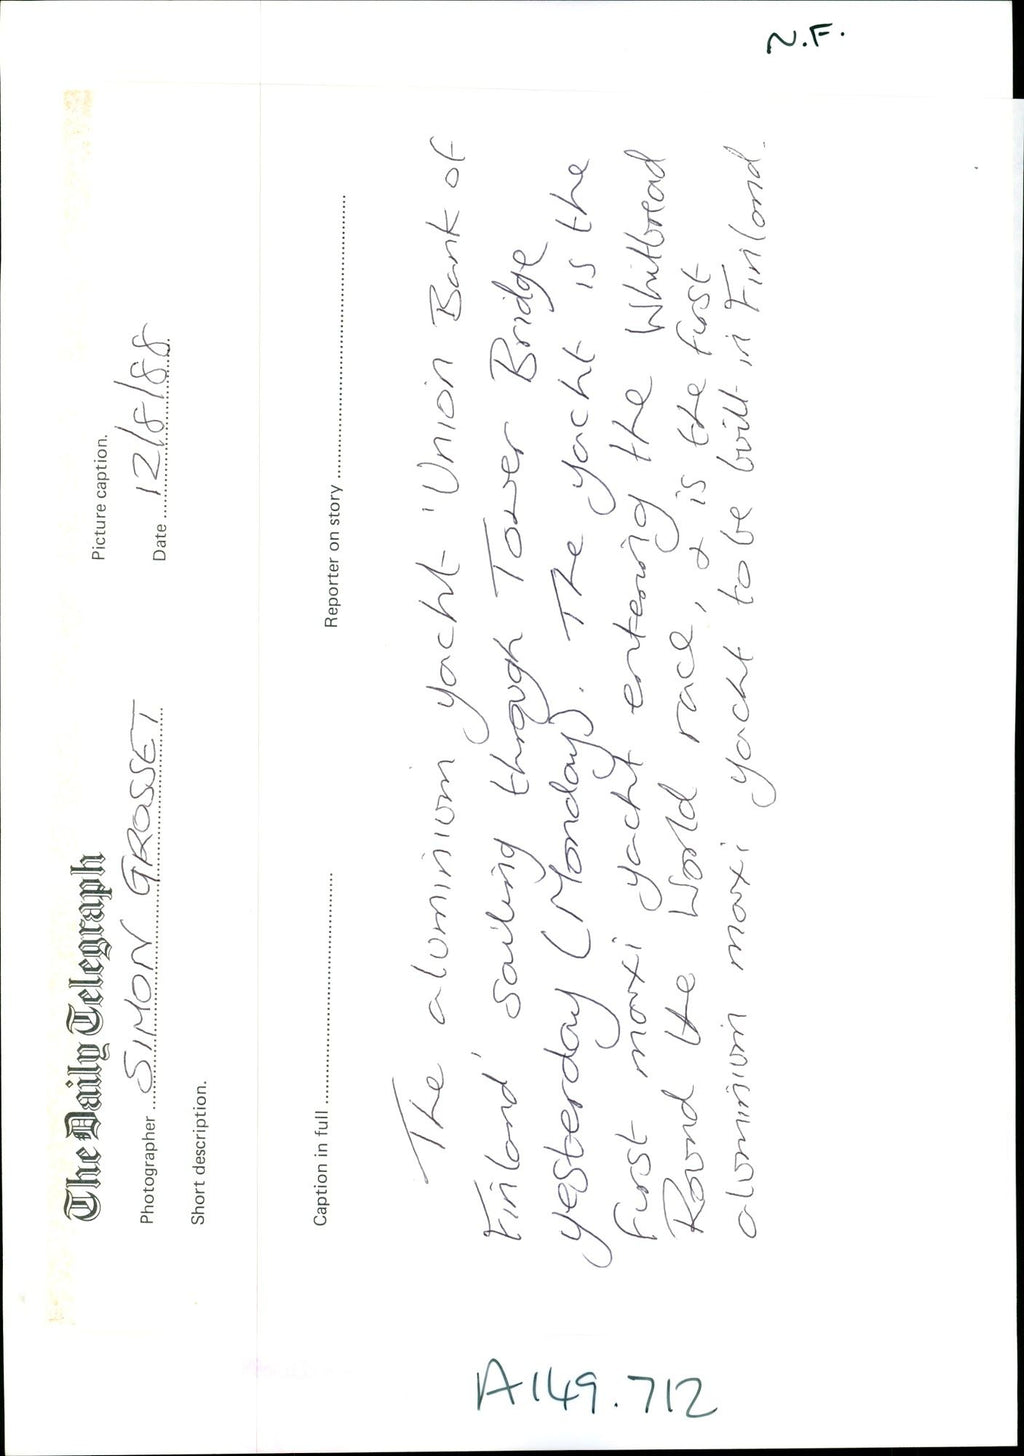 N.F.
The Daily Telegraph
Picture caption.
Photographer SIMON GROSSET
Date 12/8/88
Short description.
Caption in full
Reporter on story
The aluminium yacht 'Union Bank of
Finland' sailing through Tower Bridge
yesterday (Monday). The yacht is the
first maxi yacht entering the Whitbread
Round the World race, & is the first
aluminium maxi yacht to be built in Finland.
A149.712